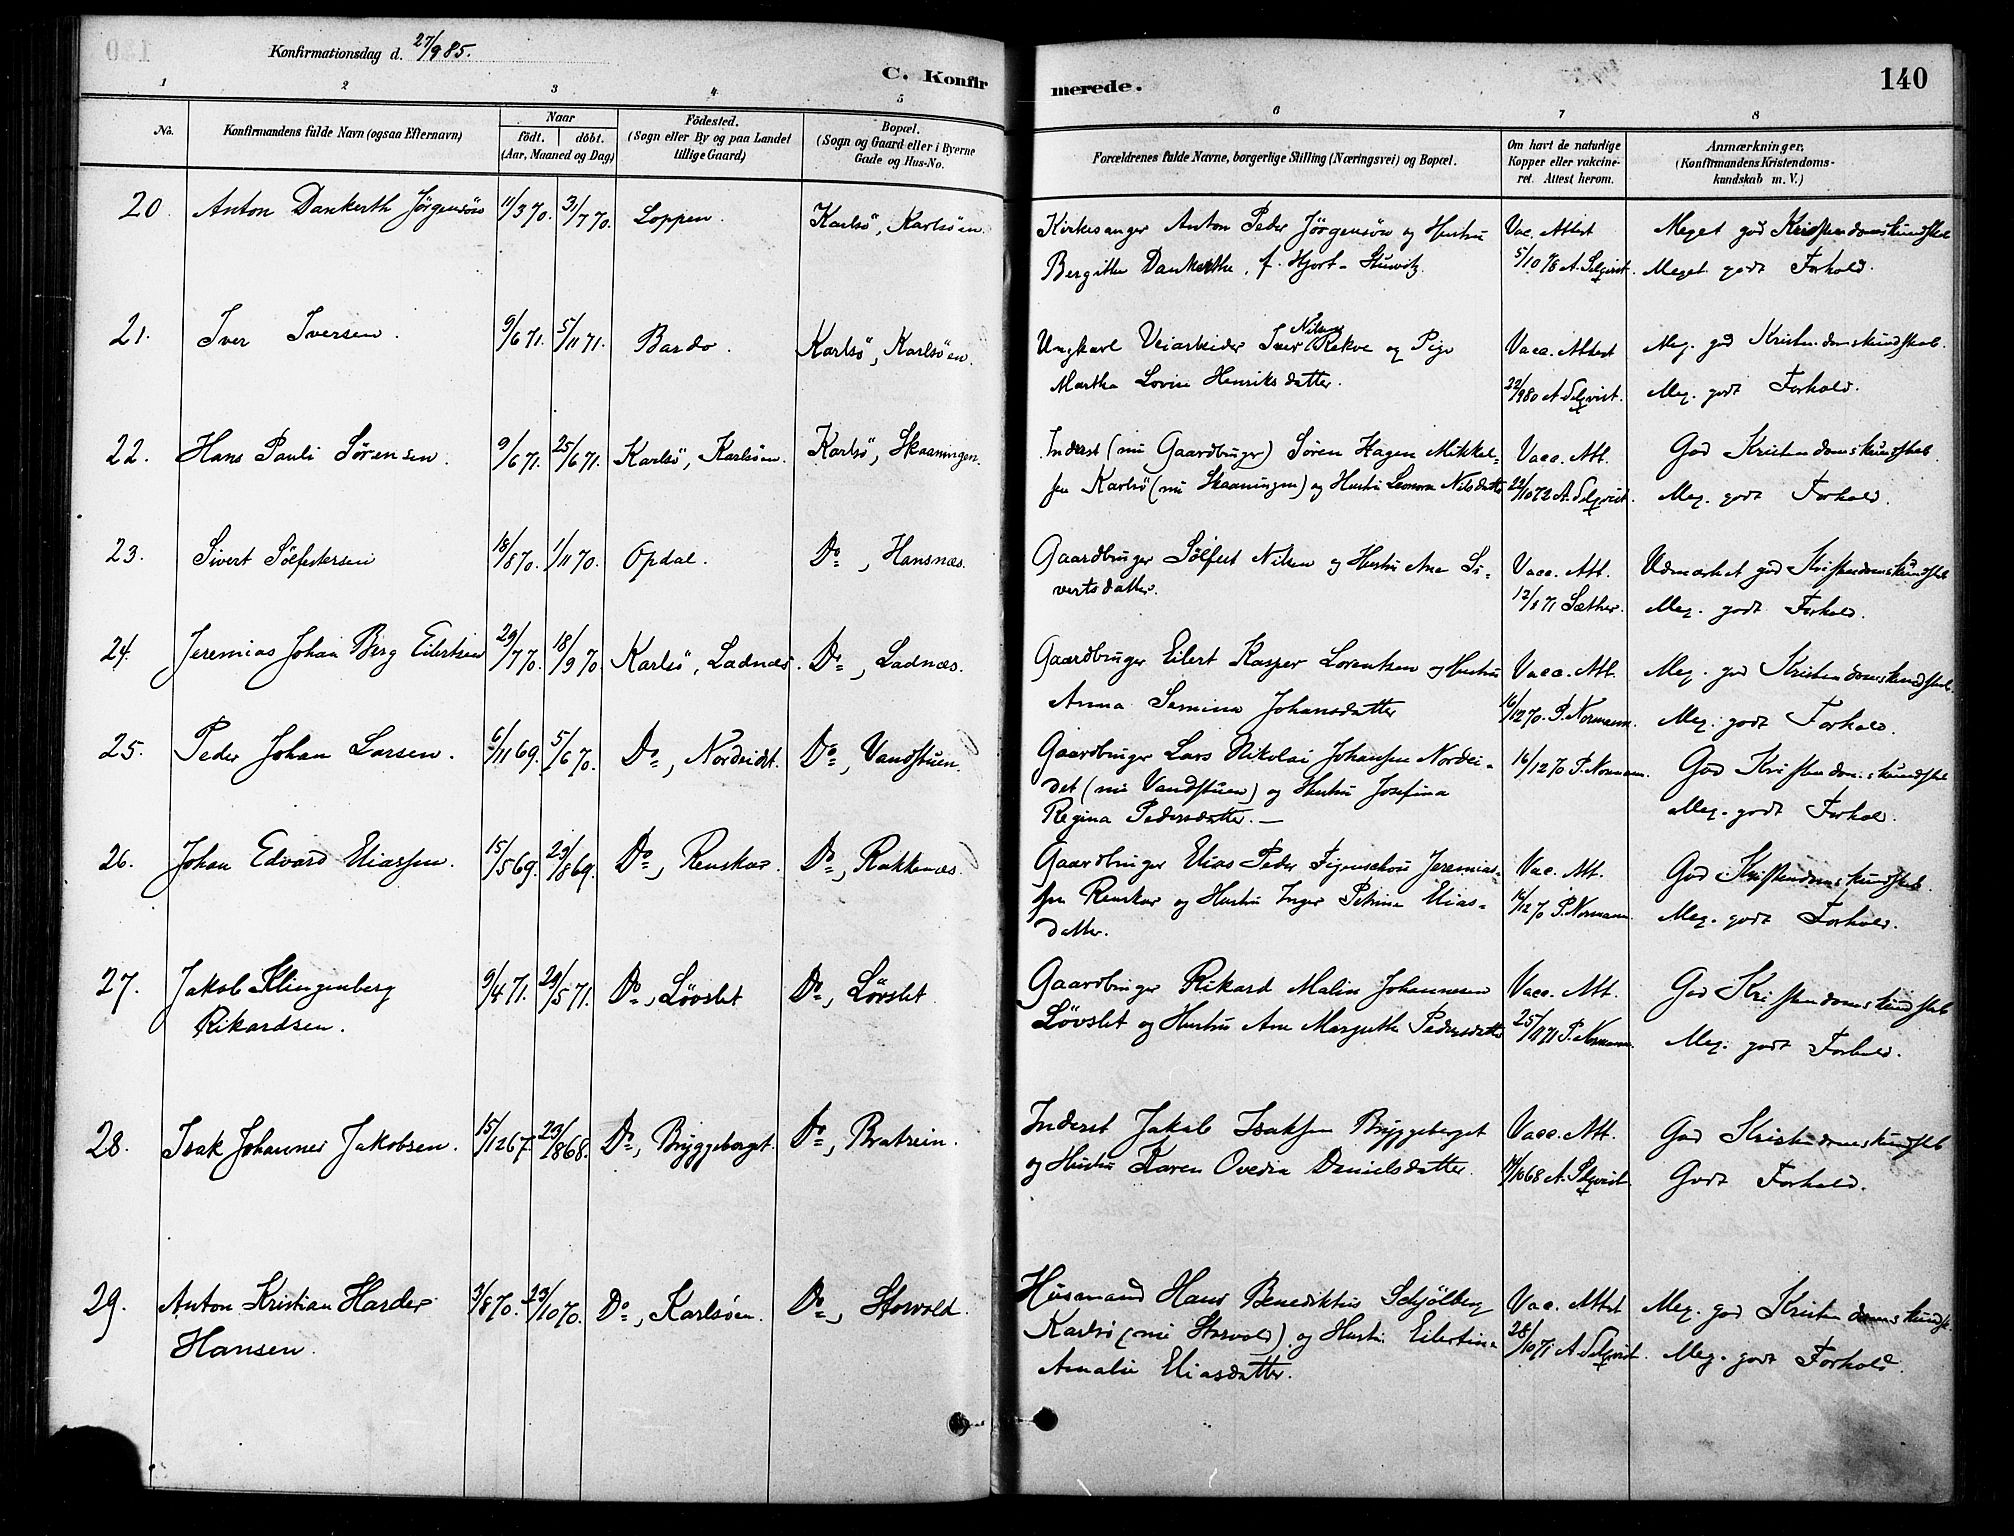 Konfirmationsdag d. 27/9 85.
C. Konfirmerede.
140
1 2 3 4 5 6 7 8
No.
Konfirmandens fulde Navn (ogsaa Efternavn)
Naar
födt. döbt.
(Aar, Maaned og Dag)
Födested.
(Sogn eller By og paa Landet
tillige Gaard)
Bopæl.
(Sogn og Gaard eller i Byerne
Gade og Hus-No.
Forældrenes fulde Navne, borgerlige Stilling (Næringsvei) og Bopæl.
Om havt de naturlige
Kopper eller vakcine-
ret. Attest herom.
Anmærkninger.
(Konfirmandens Kristendoms-
kundskab m. V.)
20. Anton Dankerth Jörgensön 11/3 70. 31/7 70. Loppen. Karlsö, Karlsöen.
Kirkesanger Anton Peder Jörgensön og Hustru
Bergitte Dankerthe, f. Hjort-Stuwitz.
Vac. Attest
5/10 78 A. Selqvist.
Meget god Kristendomskundskab
Meget godt Forhold.
21. Iver Iversen. 9/6 71. 5/11 71. Bardo. Karlsö, Karlsöen.
Ungkarl Veiarbeider Iver Nilsen Rekve og Pige
Martha Lovise Henriksdatter.
Vacc. Attest
22/9 80 A. Selqvist.
Meg. god Kristendomskundskab.
Meg. godt Forhold.
22. Hans Pauli Sörensen. 9/6 71. 25/6 71. Karlsö, Karlsöen. Karlsö, Skaaningen.
Inderst (nu Gaardbruger) Sören Hagen Mikkel-
sen Karlsö (nu Skaaningen) og Hustru Leonora Nilsdatter
Vacc. Att.
22/10 72 A. Selqvist.
God Kristendomskundskab.
Meg. godt Forhold.
23. Sivert Sölfestersen 18/8 70. 1/11 70. Opdal. Do, Hansnæs.
Gaardbruger Sölfest Nilsen og Hustru Ane Si-
vertsdatter.
Vacc. Att.
12/5 71 Sæther.
Udmærket god Kristendomskundskab
Meg. godt Forhold.
24. Jeremias Johan Berg Eilertsen 29/7 70. 18/9 70. Karlsö, Ladnæs. Do, Ladnæs.
Gaardbruger Eilert Kasper Lorentsen og Hustru
Anna Semina Johansdatter
Vacc. Att.
16/12 70. P. Normann.
Meg. god Kristendomskundskab
Meg. godt Forhold.
25. Peder Johan Larsen. 6/11 69. 5/6 70. Do, Nordeidet. Do, Vandstuen.
Gaardbruger Lars Nikolai Johansen Nordei-
det (nu Vandstuen) og Hustru Josefina
Regina Pedersdatter. —
16/12 70 P. Normann.
God Kristendomskundskab
Meg. godt Forhold.
26. Johan Edvard Eliassen. 15/5 69. 29/8 69. Do, Renskar Do, Rakkenæs.
Gaardbruger Elias Peder Figenschou Jeremias-
sen Renskar og Hustru Inger Petrine Elias-
datter.
Vac. Att.
16/12 70 P. Normann.
God Kristendomskundskab.
Meg. godt Forhold.
27. Jakob Klingenberg 9/4 71. 29/5 71. Do, Lövslet Do, Lövslet.
Rikardsen.
Gaardbruger Rikard Malin Johannesen
Lövslet og Hustru Ane Margrethe Pedersdatter
Vacc. Att.
25/11 71 P. Normann.
God Kristendomskundskab
Meg. godt Forhold.
28. Isak Johannes Jakobsen. 15/12 67. 23/8 68. Do, Bryggeberget. Do, Bratrein.
Inderst Jakob Isaksen Bryggeberget
og Hustru Karen Ovedia Danielsdatter.
Vacc. Att.
14/10 68 A. Selqvist.
God Kristendomskundskab
Godt Forhold.
29. Anton Kristian Harder 3/8 70. 23/10 70. Do, Karlsöen. Do, Storvold.
Hansen.
Husmand Hans Benediktus Schjölberg
Karlsö (nu Storvold) og Hustru Eilertine
Amalie Eliasdatter.
Vac. Attest
28/10 71 A. Selqvist.
Meg. god Kristendomskundsk.
Meg. godt Forhold.